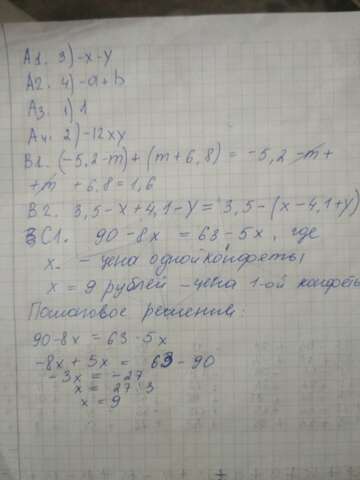 А1. 3) -x-y
А2. 4) -a+b
А3. 1) 1
А4. 2) -12xy
В1. (-5,2-m)+(m+6,8) = -5,2-m+
+m+6,8=1,6
В2. 3,5-x+4,1-y=3,5-(x-4,1+y)
С1. 90-8x=63-5x, где
x - цена одной конфеты
x = 9 рублей - цена 1-ой конфеты
Пошаговое решение:
90-8x=63-5x
-8x+5x=63-90
-3x=-27
x=27:3
x=9